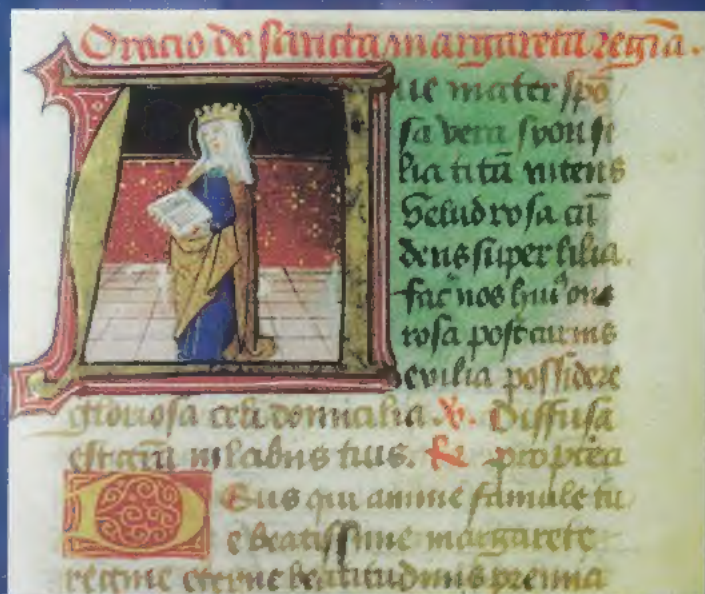 Oracio de sancta margareta regīa.
Aue mater spō
sa vera
lia titā nitens
Velud rosa cā
dens super lilia.
fac nos huiꝰ
rosa post carnis
exilia possidere
gloriosa celi domicilia. ℣. Diffusa
est grā in labiis tuis. ℟. propterea
Deus qui anime famule tu
e beatissime margarete
regine eterne beatitudinis premia